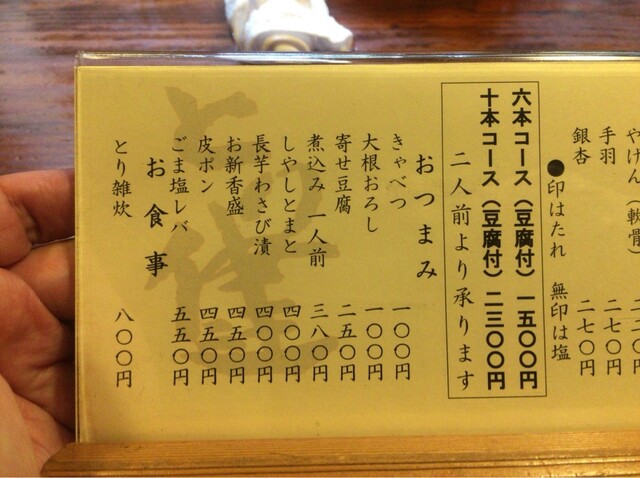 やげん（軟骨）
手羽 二七〇円
銀杏 二七〇円
●印はたれ 無印は塩
六本コース（豆腐付）一五〇〇円
十本コース（豆腐付）二三〇〇円
二人前より承ります
おつまみ
きゃべつ 一〇〇円
大根おろし 一〇〇円
寄せ豆腐 二五〇円
煮込み 一人前 三八〇円
しやしとまと 四〇〇円
長芋わさび漬 四〇〇円
お新香盛 四五〇円
皮ポン 四五〇円
ごま塩レバ 五五〇円
お食事
とり雑炊 八〇〇円